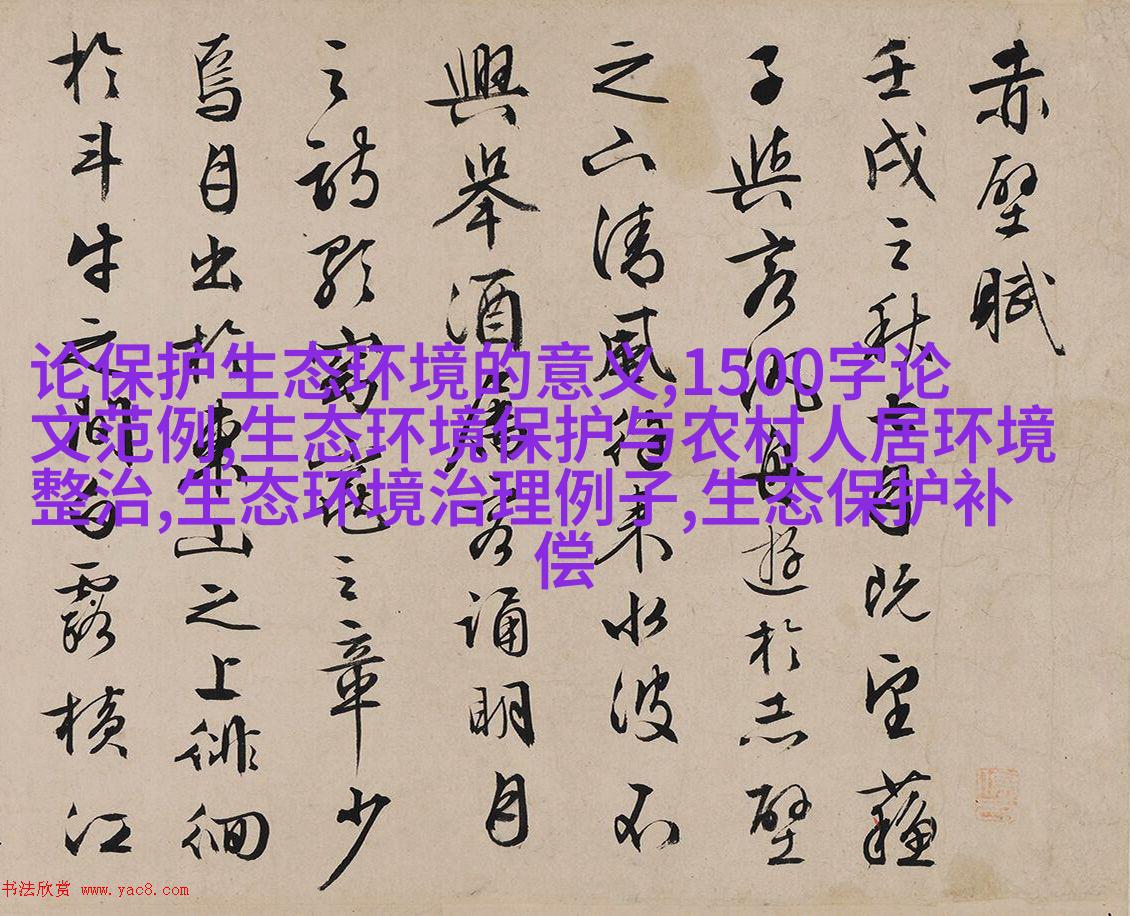 赤壁賦
壬戌之秋七月既望蘇
子與客泛舟遊於赤壁
之下清風徐來水波不
興舉酒屬客誦明月
之詩歌窈窕之章少
焉月出於東山之上徘徊
於斗牛之間白露橫江
论保护生态环境的意义,1500字论
文范例,生态环境保护与农村人居环境
整治,生态环境治理例子,生态保护补
偿
书法欣赏 www.yac8.com